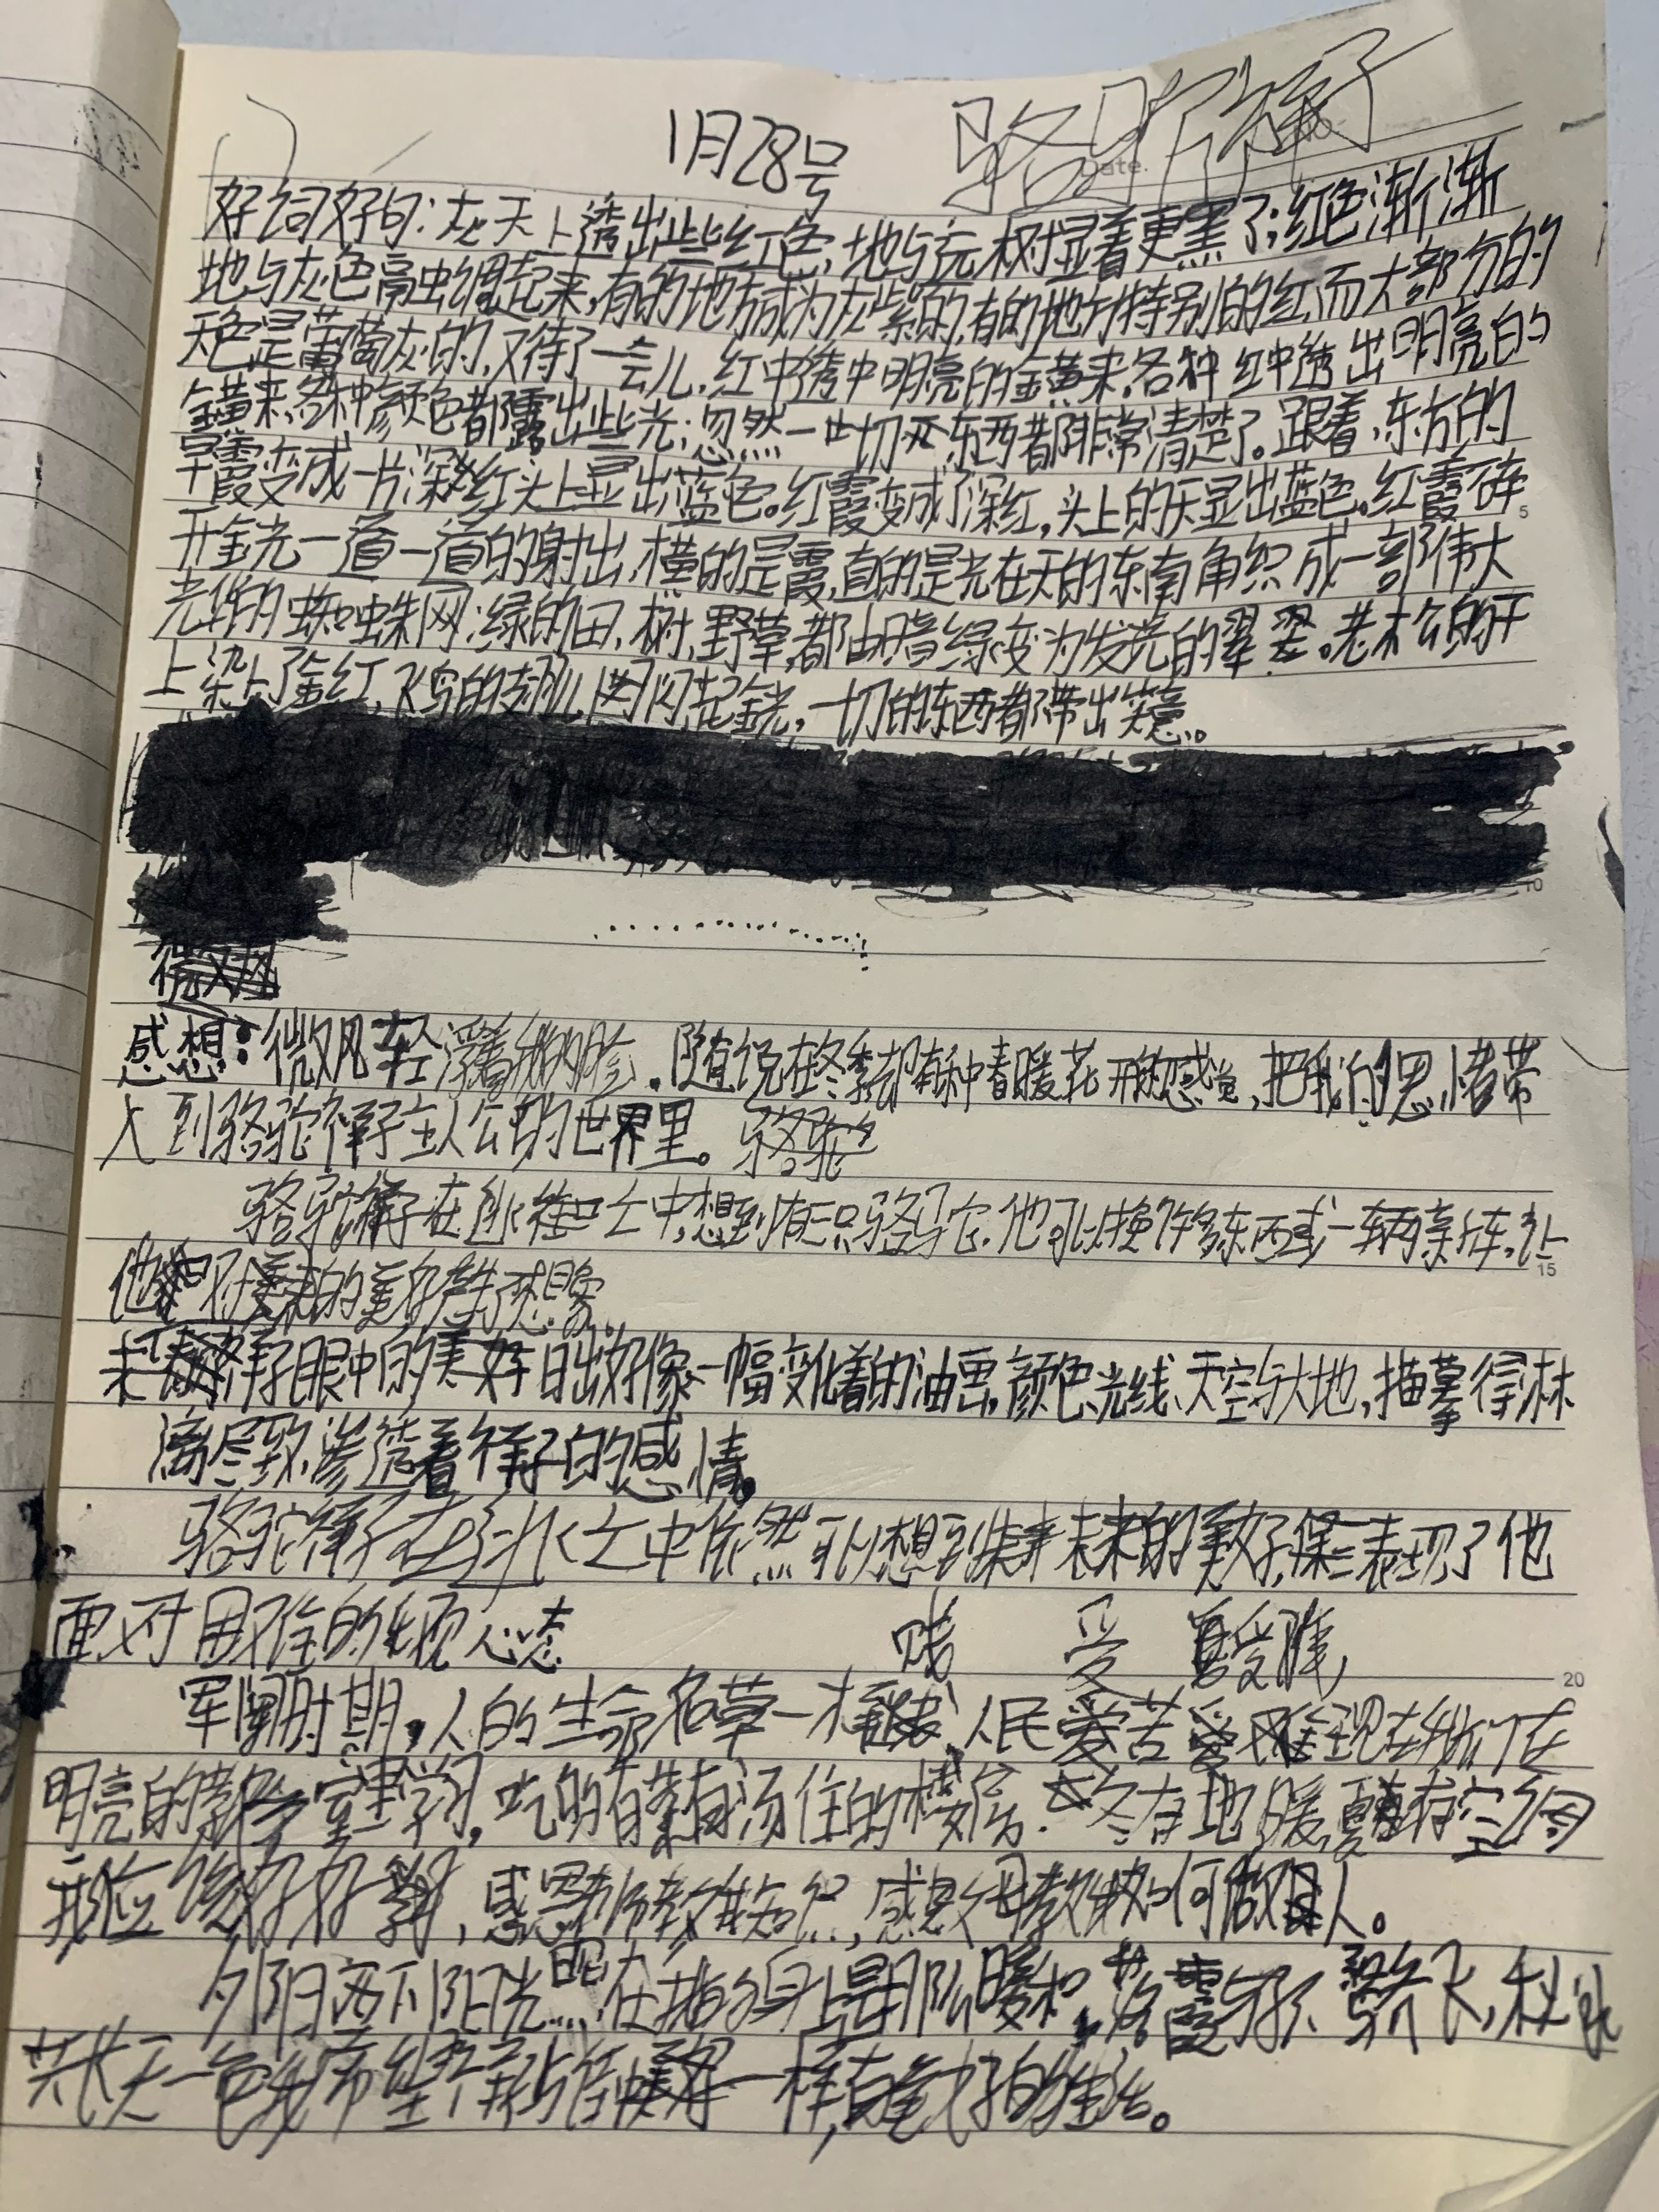 1月28号 骆驼祥子
Date.
好词好句:灰天上透出些红色,地与远树显着更黑了;红色渐渐
地与灰色融调起来,有的地方成为灰紫的,有的地方特别的红,而大部分的
天色是葡萄灰的,又待了一会儿,红中透出明亮的金黄来,各种红中透出明亮的
金黄来,各种颜色都露出些光;忽然,一切东西都非常清楚了。跟着,东方的
早霞变成一片深红,头上显出蓝色。红霞变成了深红,头上的天显出蓝色。红霞碎
开金光一道一道的射出,横的是霞,直的是光在天的东南角织成一部伟大
光华的蜘蛛网:绿的田,树,野草,都由暗绿变为发光的翠翠。老松的干
上染上了金红,飞鸟的翅儿闪闪起金光,一切的东西都带出笑意。
微风
感想:微风轻浮着我的脸,随说在冬季却有种春暖花开的感觉,把我的思绪带
入到骆驼祥子主人公的世界里。骆驼
骆驼祥子在逃亡中,想到有三只骆驼,他可以换许多东西或一辆新车,让
他对未来的美好产生了想象。
祥子眼中的美好日出好像一幅变化着的油画,颜色、光线、天空与大地,描摹得淋
漓尽致,渗透着祥子的感情。
骆驼祥子在逃亡中依然可以想到未来的美好,表现了他
面对困难的乐观心态
贱 受 夏受难
军阀时期,人的生命名草一样贱,人民受苦受难现在我们在
明亮的教室里学习,吃的有菜有汤住的楼房,冬有地暖,夏有空调
我应该好好学习,感恩老师教我知识,感恩父母教我如何做人。
夕阳西下阳光照在我的身上是那么暖和,落霞与孤鹜齐飞,秋水
共长天一色我希望祥子一样有美好的生活。
5
10
15
20